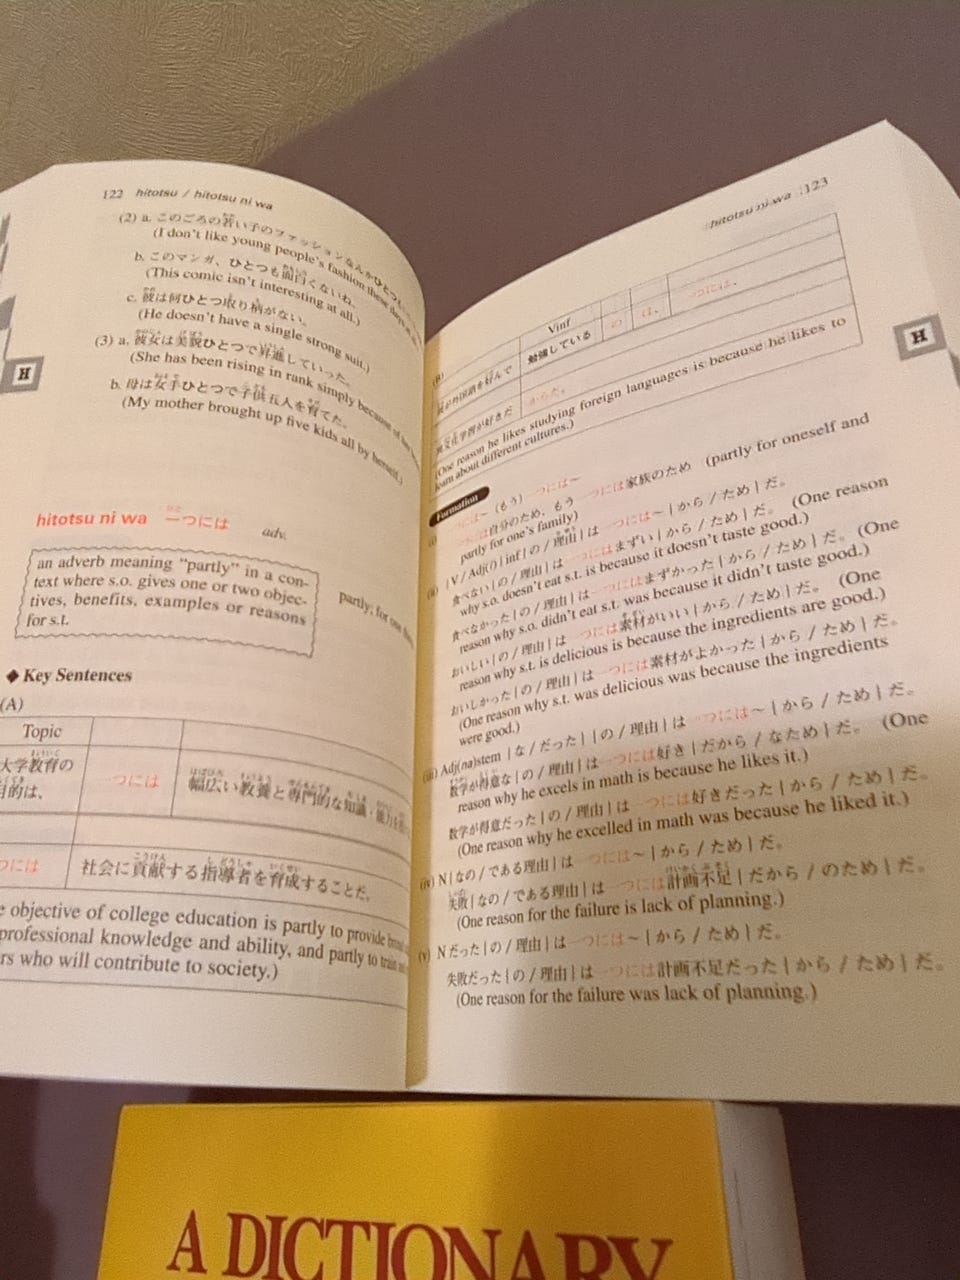 122 hitotsu / hitotsu ni wa
(2) a. このごろの若い子のファッションなんかひとつも
(I don't like young people's fashion these days at
b. このマンガ、ひとつも面白くないね。
(This comic isn't interesting at all.)
c. 彼は何ひとつ取り柄がない。
(He doesn't have a single strong suit.)
(3) a. 彼女は美貌ひとつで昇進していった。
(She has been rising in rank simply because of her
b. 母は女手ひとつで子供五人を育てた。
(My mother brought up five kids all by herself.)
H
hitotsu ni wa 一つには adv.
an adverb meaning "partly" in a con-
text where s.o. gives one or two objec-
tives, benefits, examples or reasons
for s.t.
partly, for one
◆ Key Sentences
(A)
Topic
大学教育の
目的は、
一つには
幅広い教養と専門的な知識・能力を
つには
社会に貢献する指導者を育成することだ。
e objective of college education is partly to provide broad
professional knowledge and ability, and partly to train
rs who will contribute to society.)
hitotsu ni wa 123
H
(B)
Vinf
が外国語を好んで
勉強している
の
は、
一つには、
異文化学習が好きだ
からだ。
(One reason he likes studying foreign languages is because he likes to
learn about different cultures.)
Formation
(i) 一つには~ (もう)一つには~
一つには自分のため、もう一つには家族のため (partly for oneself and
partly for one's family)
(ii) {V / Adj(i)} inf {の / 理由} は一つには~{から / ため}だ。
食べない{の / 理由}は一つにはまずい{から / ため}だ。 (One reason
why s.o. doesn't eat s.t. is because it doesn't taste good.)
食べなかった{の / 理由}は一つにはまずかった{から / ため}だ。 (One
reason why s.o. didn't eat s.t. was because it didn't taste good.)
おいしい{の / 理由}は一つには素材がいい{から / ため}だ。 (One
reason why s.t. is delicious is because the ingredients are good.)
おいしかった{の / 理由}は一つには素材がよかった{から / ため}だ。
(One reason why s.t. was delicious was because the ingredients
were good.)
(iii) Adj(na)stem {な / だった} {の / 理由} は一つには~{から / ため}だ。
数学が得意な{の / 理由}は一つには好き{だから / なため}だ。 (One
reason why he excels in math is because he likes it.)
数学が得意だった{の / 理由}は一つには好きだった{から / ため}だ。
(One reason why he excelled in math was because he liked it.)
(iv) N{なの / である理由}は一つには~{から / ため}だ。
失敗{なの / である理由}は一つには計画不足{だから / のため}だ。
(One reason for the failure is lack of planning.)
(v) Nだった{の / 理由}は一つには~{から / ため}だ。
失敗だった{の / 理由}は一つには計画不足だった{から / ため}だ。
(One reason for the failure was lack of planning.)
A DICTIONARY